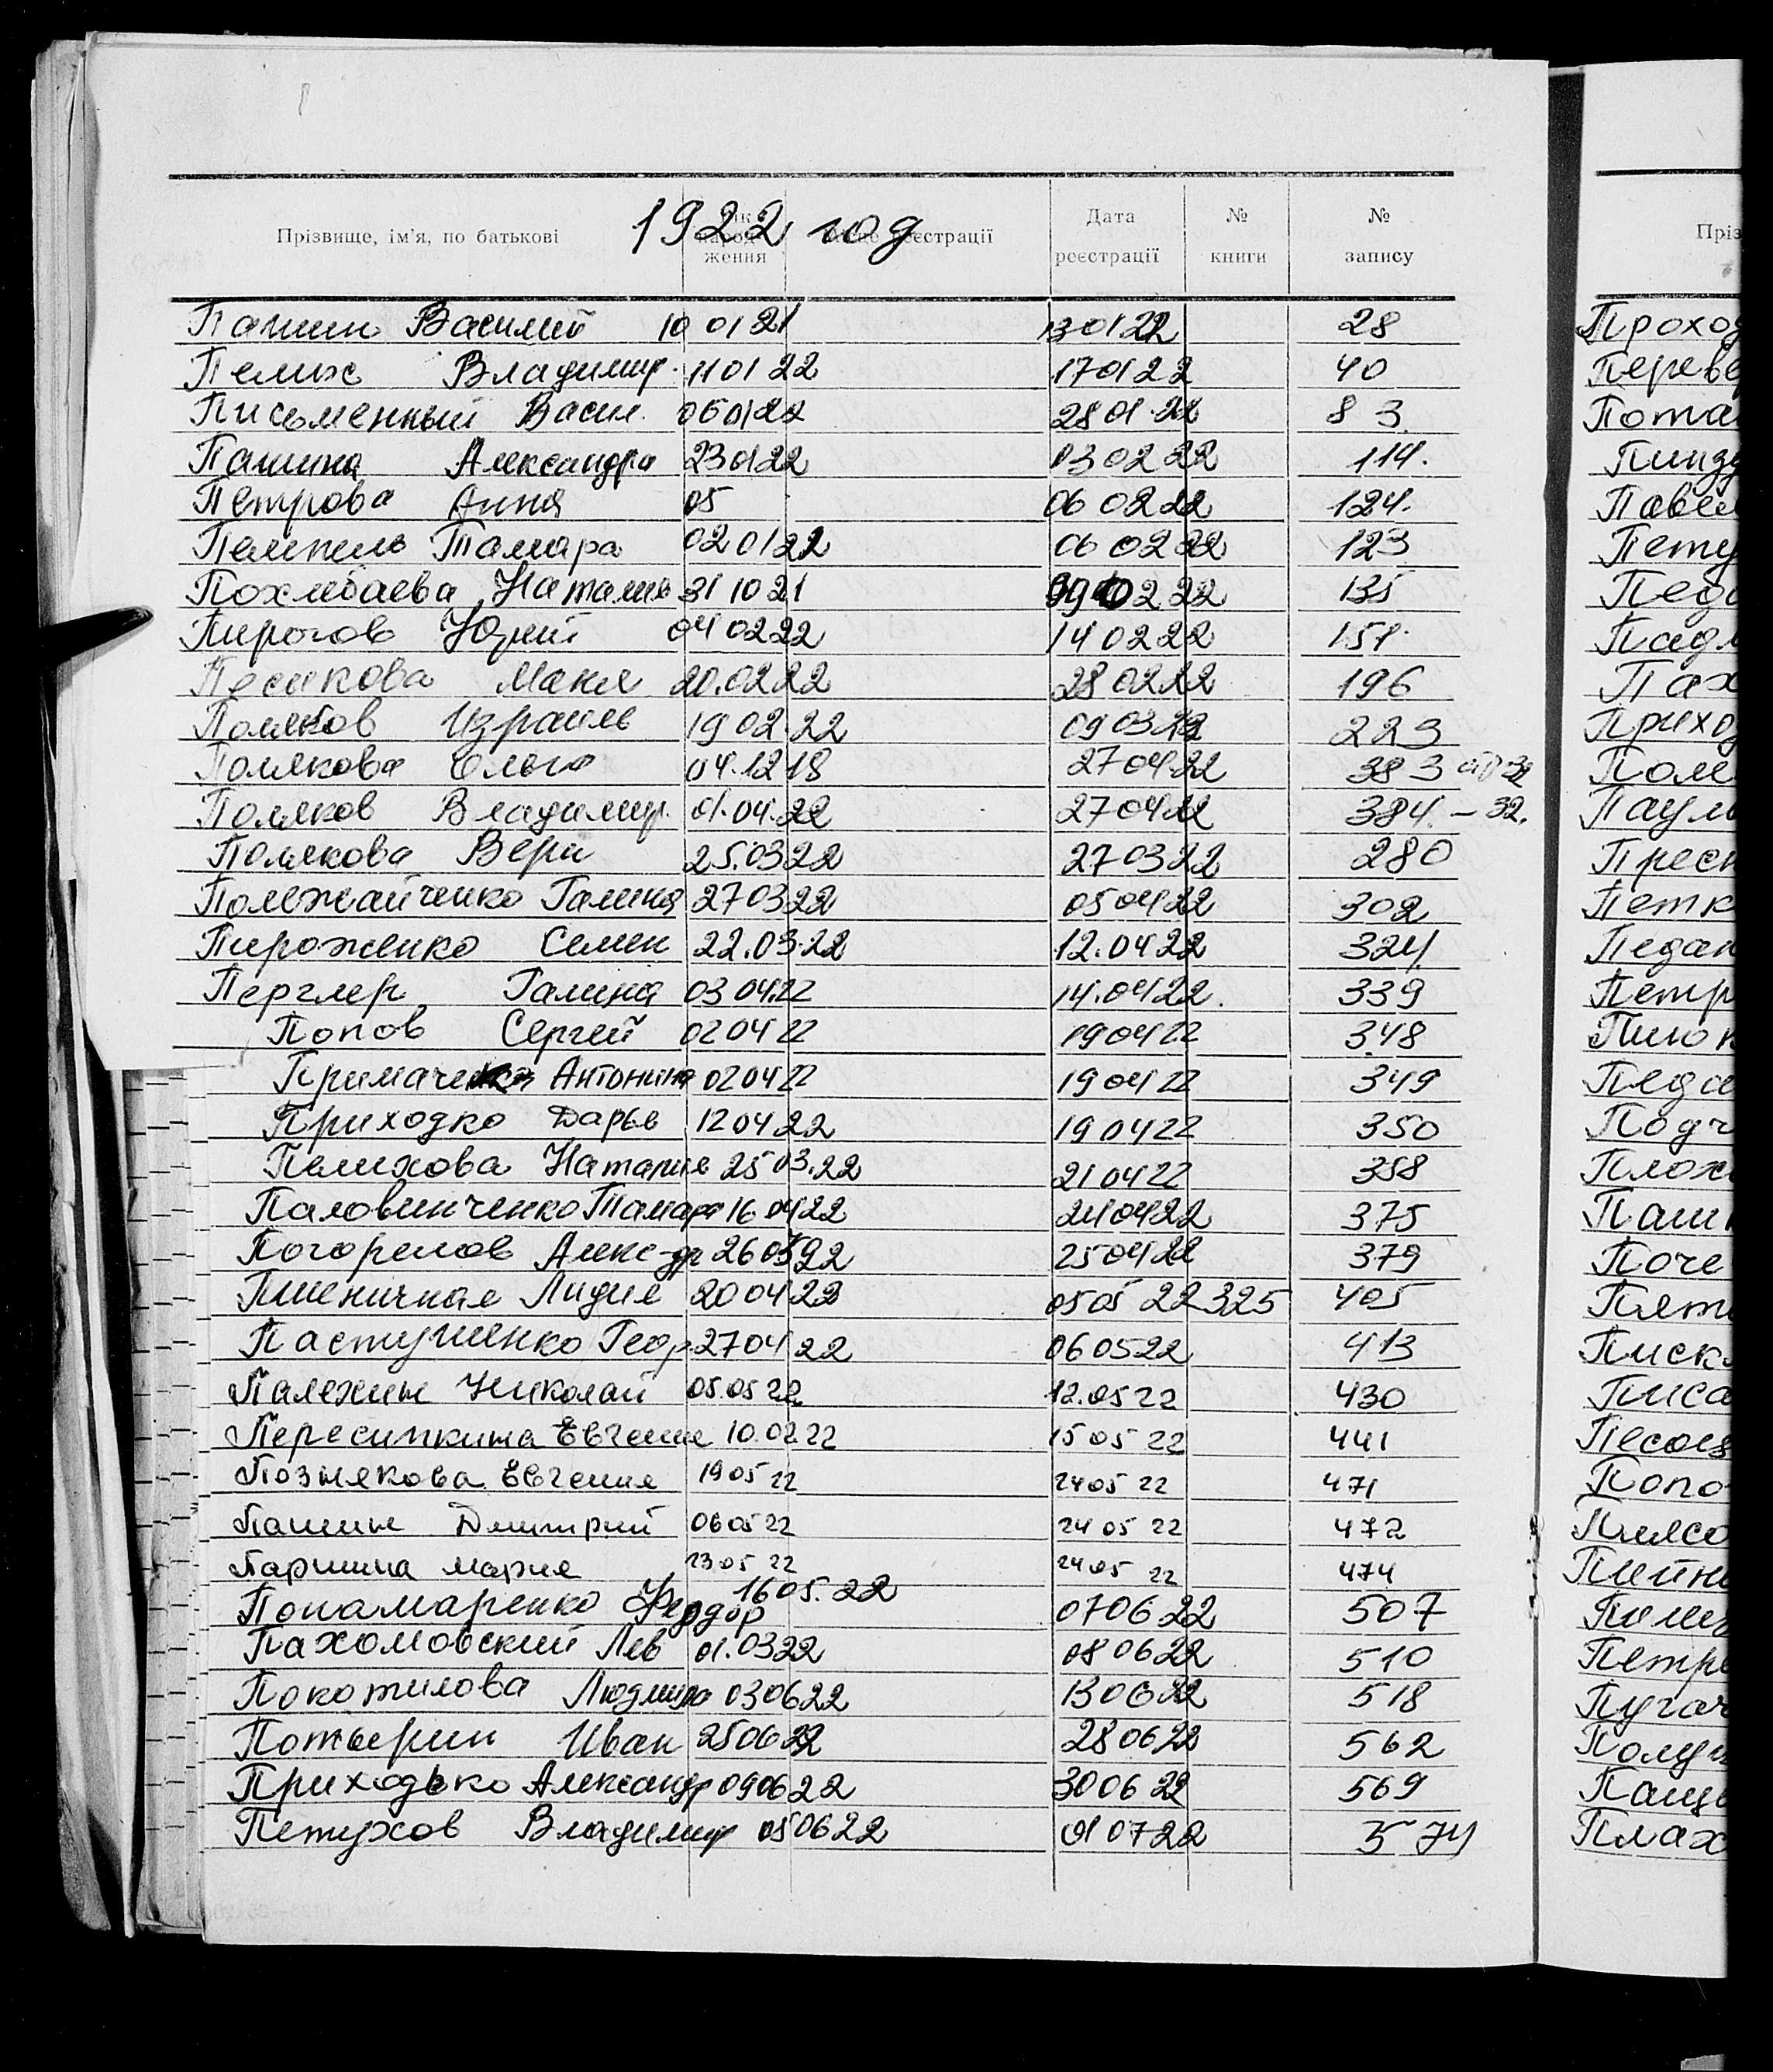 1922 год
Прізвище, ім'я, по батькові Рік народження Місце реєстрації Дата реєстрації № книги № запису
Панин Василий 10 01 21 13 01 22 28
Пелих Владимир. 11 01 22 17 01 22 40
Письменный Васил. 06 01 22 28 01 22 83
Панина Александра 23 01 22 03 02 22 114.
Петрова Анна 05 06 02 22 124.
Тамара 02 01 22 06 02 22 123
Похлебаева Наталия 31 10 21 09 02 22 135
Пирогов Юрий 04 02 22 14 02 22 151.
Песикова Маня 20.02 22 28 02 22 196
Поляков Израиль 19 02.22 09 03 22 223
Полякова Ольга 04.12 18 27 04 22 383
Поляков Владимир. 01.04.22 27 04 22 384 – 32.
Полякова Вера 25.03 22 27 03 22 280
Полежайченко Галина 27 03 22 05 04 22 302
Пироженко Семен 22.03.22 12.04 22 324
Перглер Галина 03 04.22 14.04 22. 339
Попов Сергей 02 04 22 19 04 22 348
Примаченко Антонина 02 04 22 19 04 22 349
Приходко Дарья 12 04 22 19 04 22 350
Пелихова Наталия 25 03.22 21 04 22 358
Паловинченко Тамара 16 04 22 24 04 22 375
Погорелов Алекс-др 26 03 22 25 04 22 379
Пшеничная Лидия 20 04 22 05 05 22 325 405
Пастушенко Геор. 27 04 22 06 05 22 413
Палехин Николай 05.05 22 12.05 22 430
Пересипкина Евгения 10.02 22 15 05 22 441
Познякова Евгения 19 05 22 24 05 22 471
Панин Дмитрий 06 05 22 24 05 22 472
Паршина Мария 23 05 22 24 05 22 474
Понамаренко Федор 16 05.22 07 06 22 507
Пахомовский Лев 01.03 22 08 06 22 510
Покотилова Людмила 03 06 22 13 06 22 518
Потьерин Иван 25 06 22 28 06 22 562
Приходько Александр 09 06 22 30 06 22 569
Петухов Владимир 05 06 22 01 07 22 574